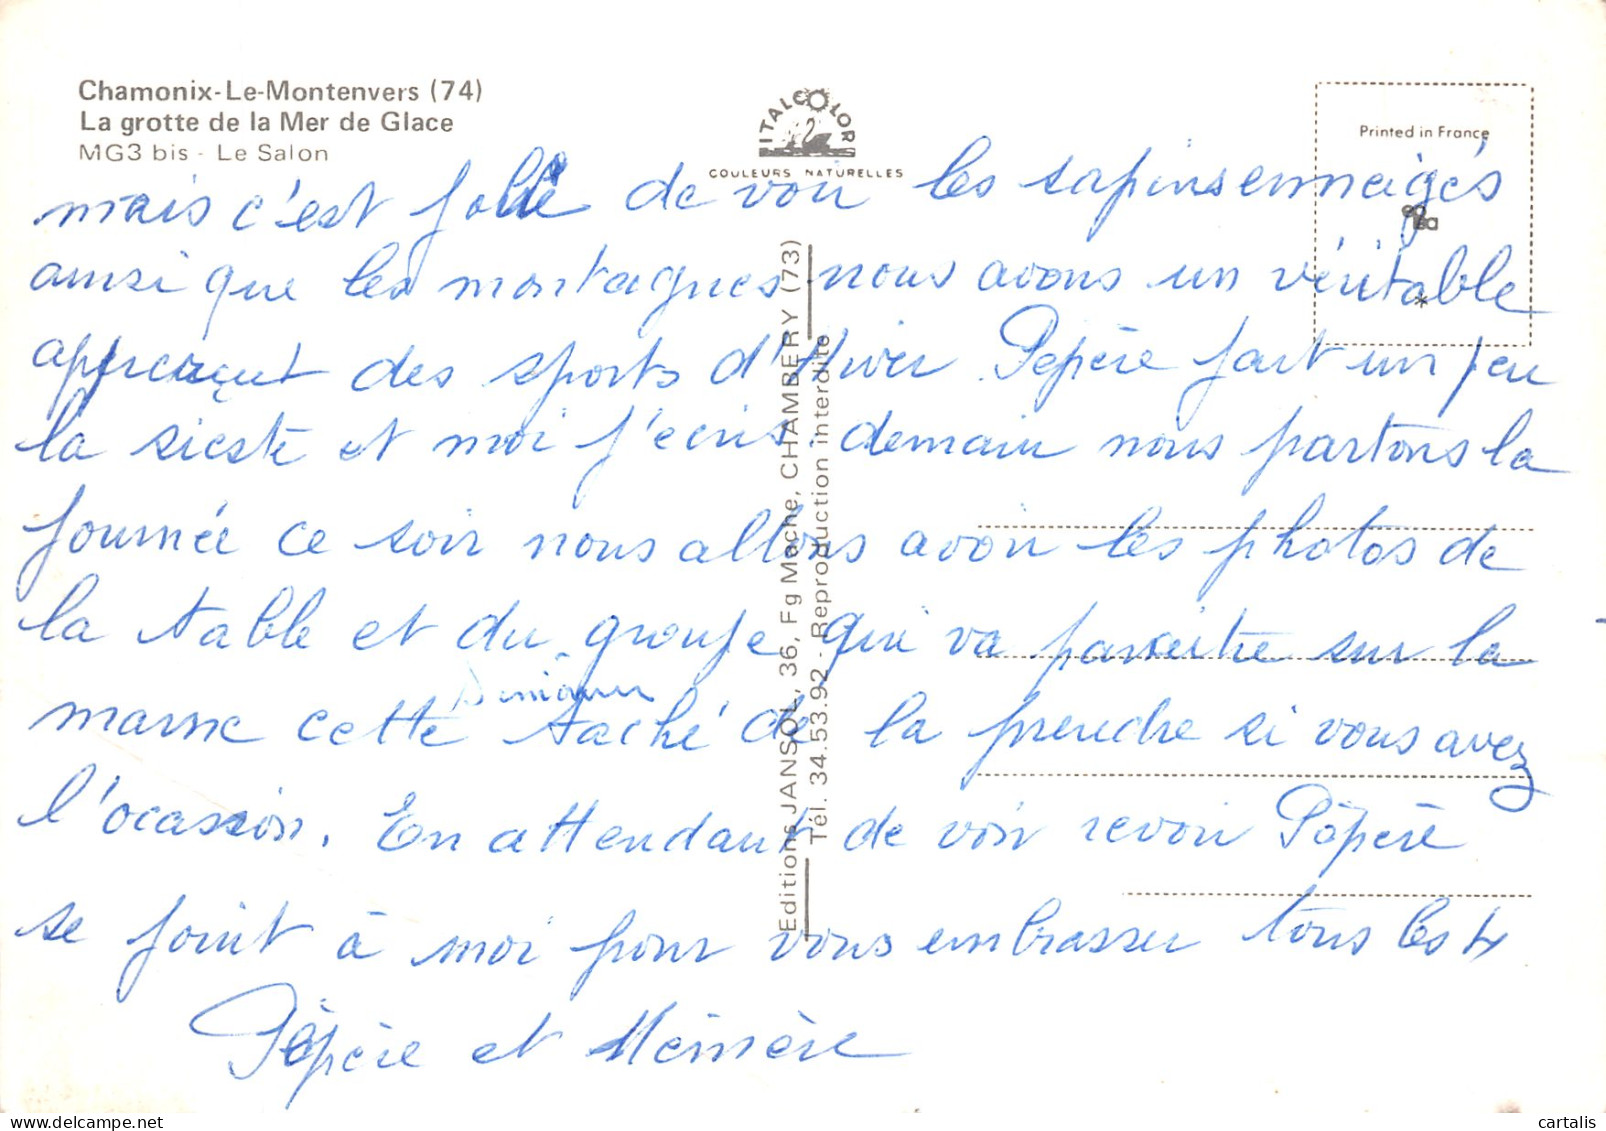 Chamonix-Le-Montenvers (74)
La grotte de la Mer de Glace
MG3 bis - Le Salon
ITALCOLOR
COULEURS NATURELLES
Printed in France
Editions JANSOL, 36, Fg Mache, CHAMBERY (73)
Tél. 34.53.92 - Reproduction interdite
mais c'est jolie de voir les sapins enneigés
ainsi que les montagnes nous avons un véritable
apperçut des sports d'Hiver. Pepère fait un peu
la sieste et moi j'ecris. demain nous partons la
journée ce soir nous allons avoir les photos de
la table et du groupe qui va paraitre sur la
marne cette semaine taché de la prendre si vous avez
l'ocassion. En attendant de voir revoir Pépère
se joint à moi pour vous embrasser tous les 4
Pépère et Mémère
cartalis